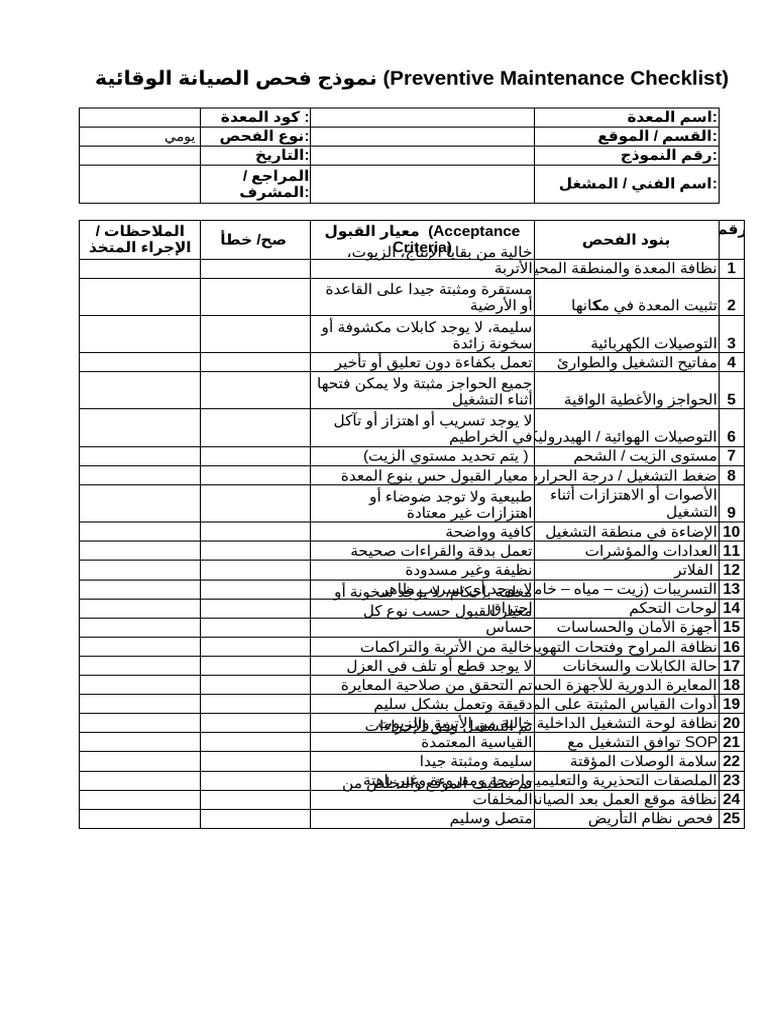 نموذج فحص الصيانة الوقائية (Preventive Maintenance Checklist)
اسم المعدة: كود المعدة :
القسم / الموقع: نوع الفحص: يومي
رقم النموذج: التاريخ:
اسم الفني / المشغل: المراجع / المشرف:
رقم بنود الفحص معيار القبول (Acceptance Criteria) صح/ خطأ الملاحظات / الإجراء المتخذ
1 نظافة المعدة والمنطقة خالية من بقايا الإنتاج، الزيوت، الأتربة
2 تثبيت المعدة في مكانها مستقرة ومثبتة جيدا على القاعدة أو الأرضية
3 التوصيلات الكهربائية سليمة، لا يوجد كابلات مكشوفة أو سخونة زائدة
4 مفاتيح التشغيل والطوارئ تعمل بكفاءة دون تعليق أو تأخير
5 الحواجز والأغطية الواقية جميع الحواجز مثبتة ولا يمكن فتحها أثناء التشغيل
6 التوصيلات الهوائية / لا يوجد تسريب أو اهتزاز أو تآكل في الخراطيم
7 مستوى الزيت / الشحم ( يتم تحديد مستوي الزيت)
8 ضغط التشغيل / درجة معيار القبول حس بنوع المعدة
9 الأصوات أو الاهتزازات أثناء التشغيل طبيعية ولا توجد ضوضاء أو اهتزازات غير معتادة
10 الإضاءة في منطقة التشغيل كافية وواضحة
11 العدادات والمؤشرات تعمل بدقة والقراءات صحيحة
12 الفلاتر نظيفة وغير مسدودة
13 التسريبات (زيت – مياه – لا يوجد أي تسريب ظاهر
14 لوحات التحكم مغلقة بإحكام، لا يوجد سخونة أو احتراق
15 أجهزة الأمان والحساسات معيار القبول حسب نوع كل حساس
16 نظافة المراوح وفتحات خالية من الأتربة والتراكمات
17 حالة الكابلات والسخانات لا يوجد قطع أو تلف في العزل
18 المعايرة الدورية للأجهزة تم التحقق من صلاحية المعايرة
19 أدوات القياس المثبتة على دقيقة وتعمل بشكل سليم
20 نظافة لوحة التشغيل الداخلية خالية من الأتربة والزيوت
21 توافق التشغيل مع SOP تم التشغيل وفق الإجراءات القياسية المعتمدة
22 سلامة الوصلات المؤقتة سليمة ومثبتة جيدا
23 الملصقات التحذيرية واضحة ومقروءة وغير باهتة
24 نظافة موقع العمل بعد الصيانة تم تنظيف الموقع والتخلص من المخلفات
25 فحص نظام التأريض متصل وسليم